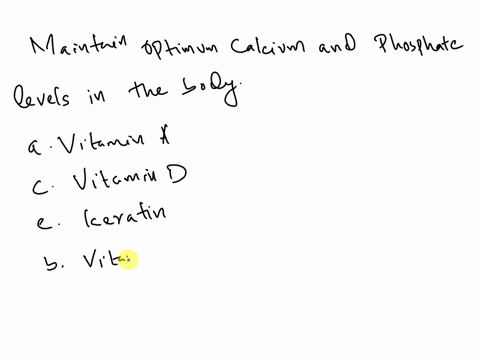 Maintain optimum Calcium and Phosphate
levels in the body.
a. Vitamin A
c. Vitamin D
e. keratin
b. Vita